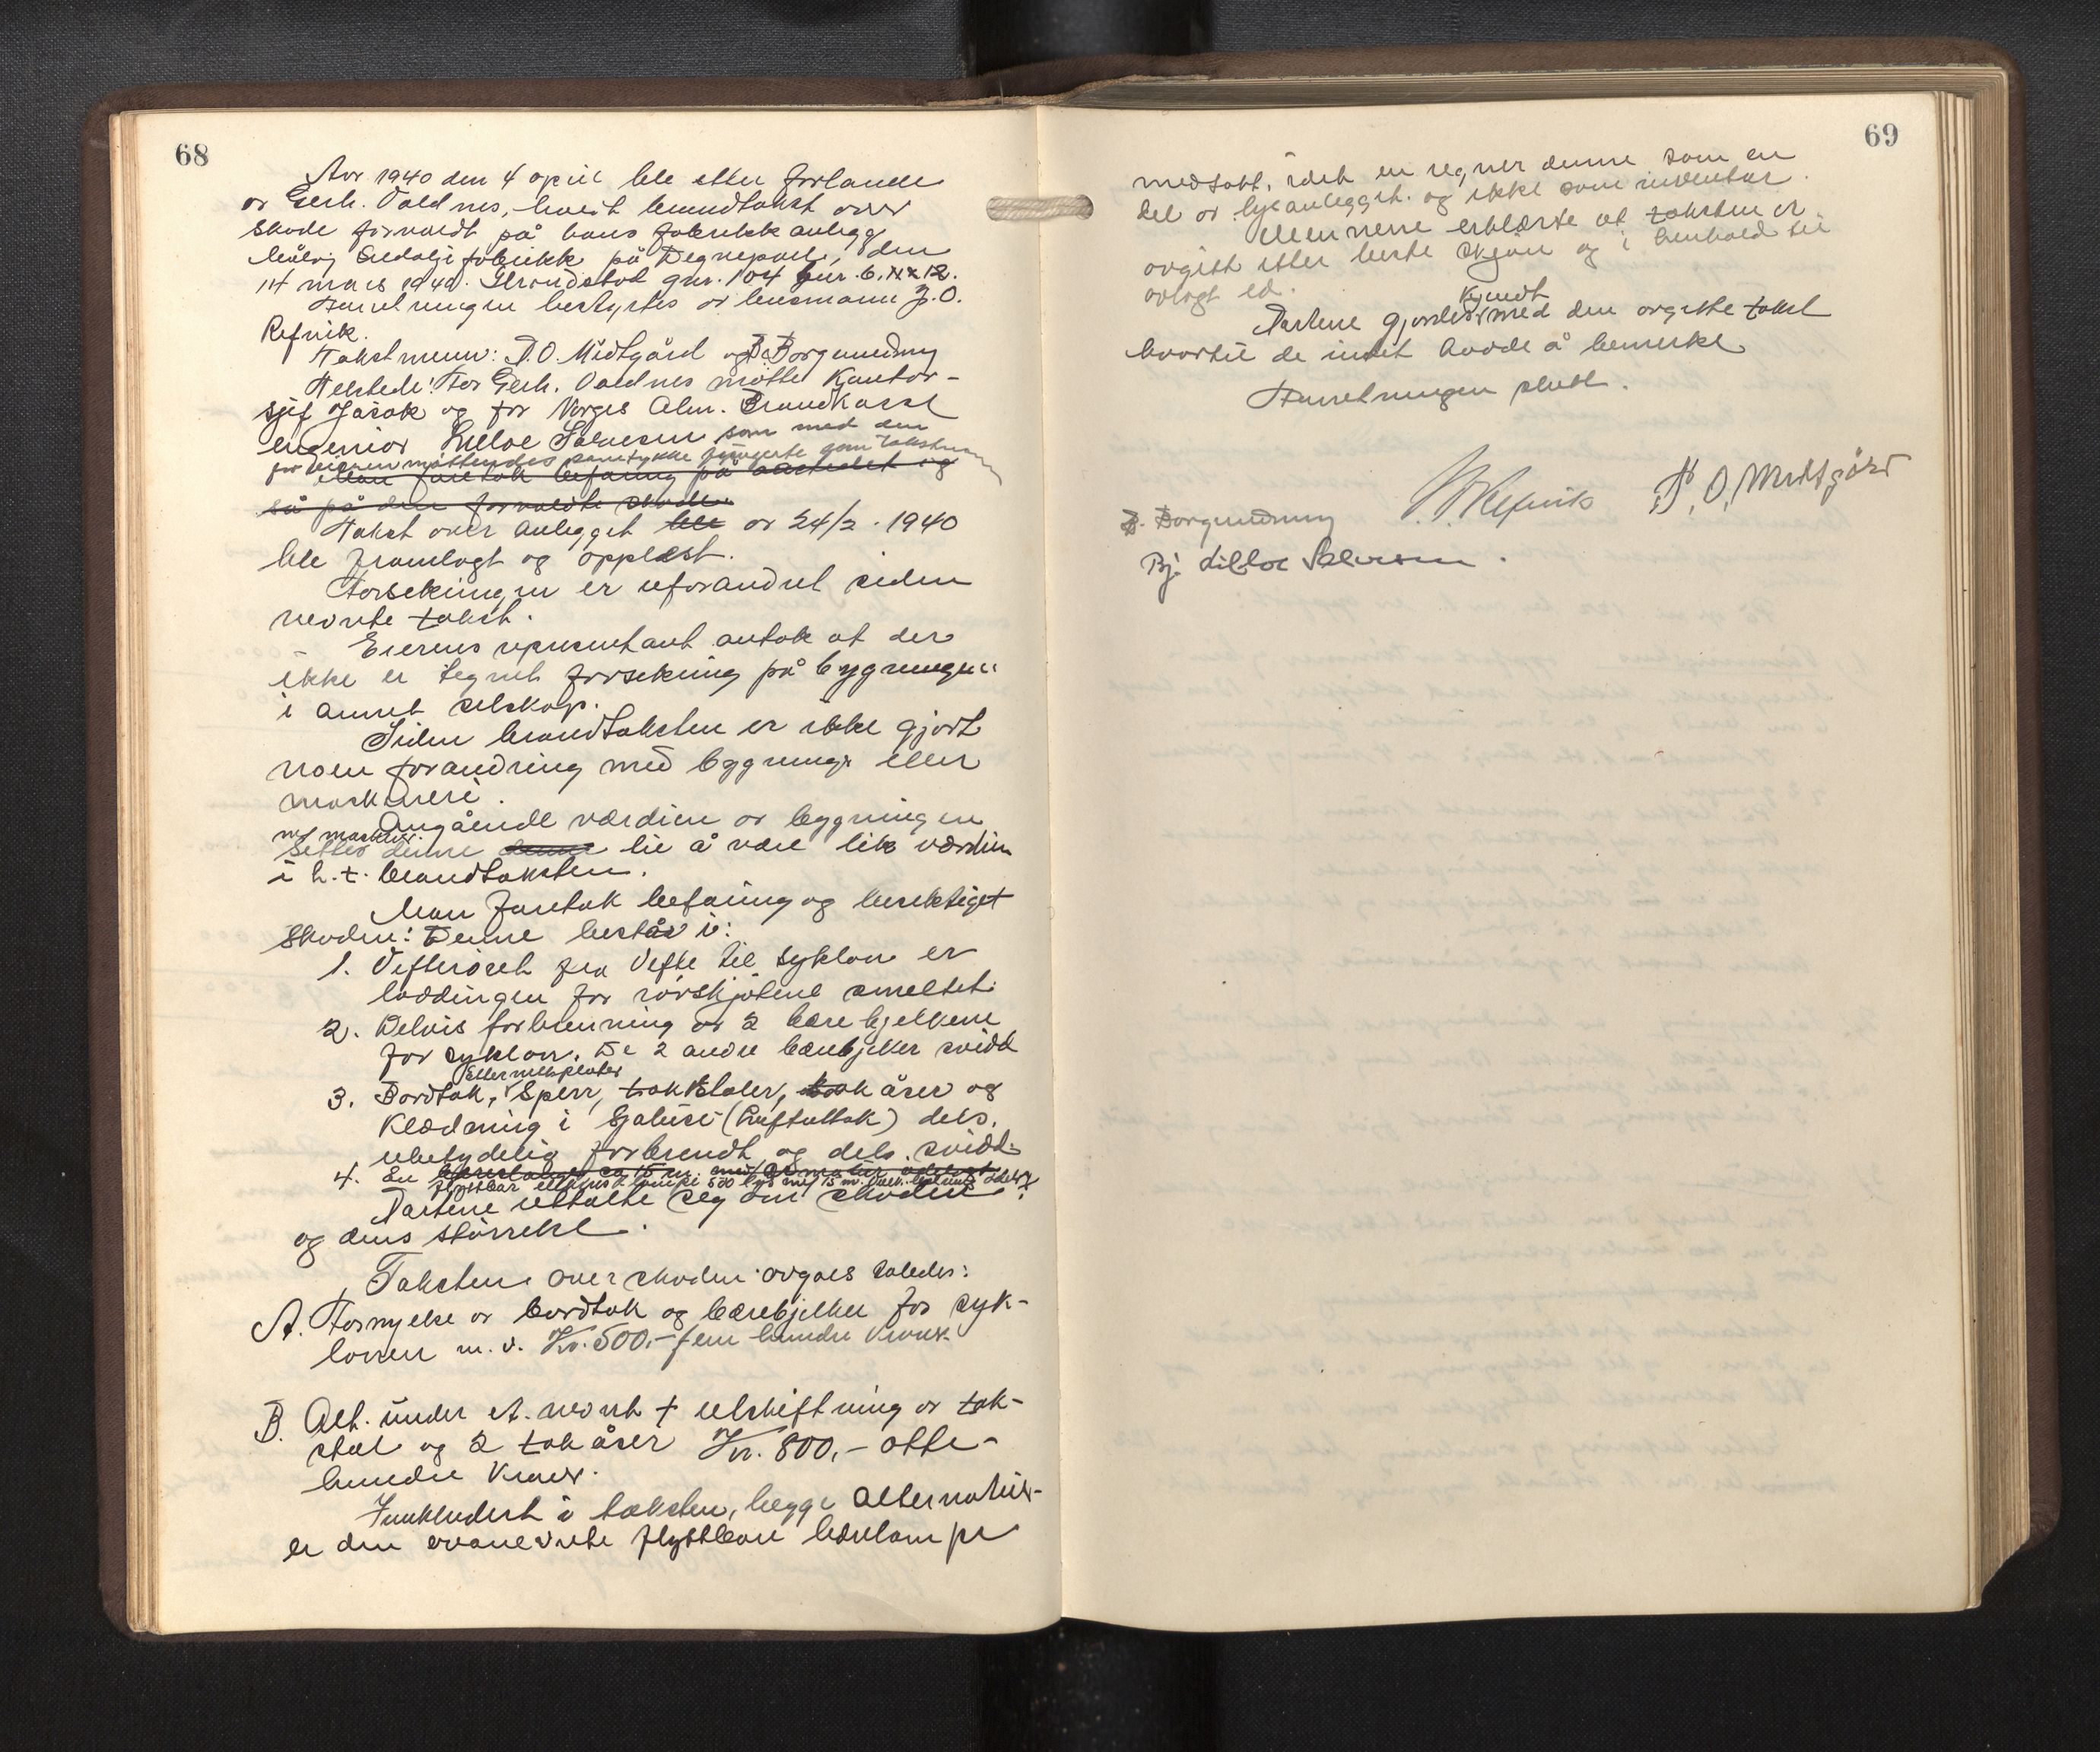 68
Aar 1940 den 4 april ble etter forlande
av Gerh. Voldnes, holdt branntakst over
skade forvoldt på hans fabrikkanlegg
Måløy Sildolje fabrikk på Degnepoll, den
14 mars 1940.
Forretningen bestyrtes av lensmann J.O.
Refvik.
Takstmenn: P.O. Midtgård og B. Borgundnes
Tilstede: For Gerh. Voldnes møtte Kontor-
sjef og for Norges Alm. Brandkasse
ingeniør Lilloe Salvesen som med den
for eieren møttendes samtykke fungerte som takstmann
Man foretok befaring på aastedet og
så på den forvoldte skade
Takst over anlegget ble av 24/2 . 1940
ble framlagt og opplest.
Forsikringen er uforandret siden
nevnte takst.
Eierens representant antok at der
ikke er tegnet forsikring på bygningen
i annet selskap.
Siden brandtaksten er ikke gjort
noen forandring med bygninge eller
maskineri.
Angående værdien av bygningen
m/ maskiner
settes denne denne til å være lik værdien
i h.t. brandtaksten.
Man foretok befaring og besiktiget
Skaden: Denne består i:
1. Vifterøret fra Vifte til syklon er
loddingen for rørskjøtene smeltet.
2. Delvis forbrenning av 2 bærebjelkene
for syklon. De 2 andre bærebjelker svidd
Eternitplater
3. Bordtak, Sperr, takstoler, tak åser og
Klædning i Sjalusi (Luftuttak) dels.
ubetydelig forbrendt og dels. svidd.
4. En
flyttbar lampe 500 lys m/ 15 m.
Partene uttalte seg om skaden
og dens størrelse.
Taksten over skaden avgaes således:
A. Fornyelse av bordtak og bærebjelker for syk-
lonen m.v. Kr. 500,- fem hundre kroner
B. Alt. under A. nevnt + utskiftning av tak-
stol og 2 tak åser Kr. 800,- otte-
hundre kroner.
Innkludert i taksten, begge alternativ-
er den ovanevnte flyttbare lampe
69
medtatt, idet en regner denne som en
del av lysanlegget. og ikke som inventar.
Mennene erklærte at taksten er
avgitt etter beste skjøn og i henhold til
avlagt ed.
kjendt
Partene gjordes med den avgitte takst
hvortil de intet havde å bemerke
Forretningen slutt.
J.O. Refvik P.O. Midtgård
B. Borgundnes
Bj. Lilloe Salvesen.